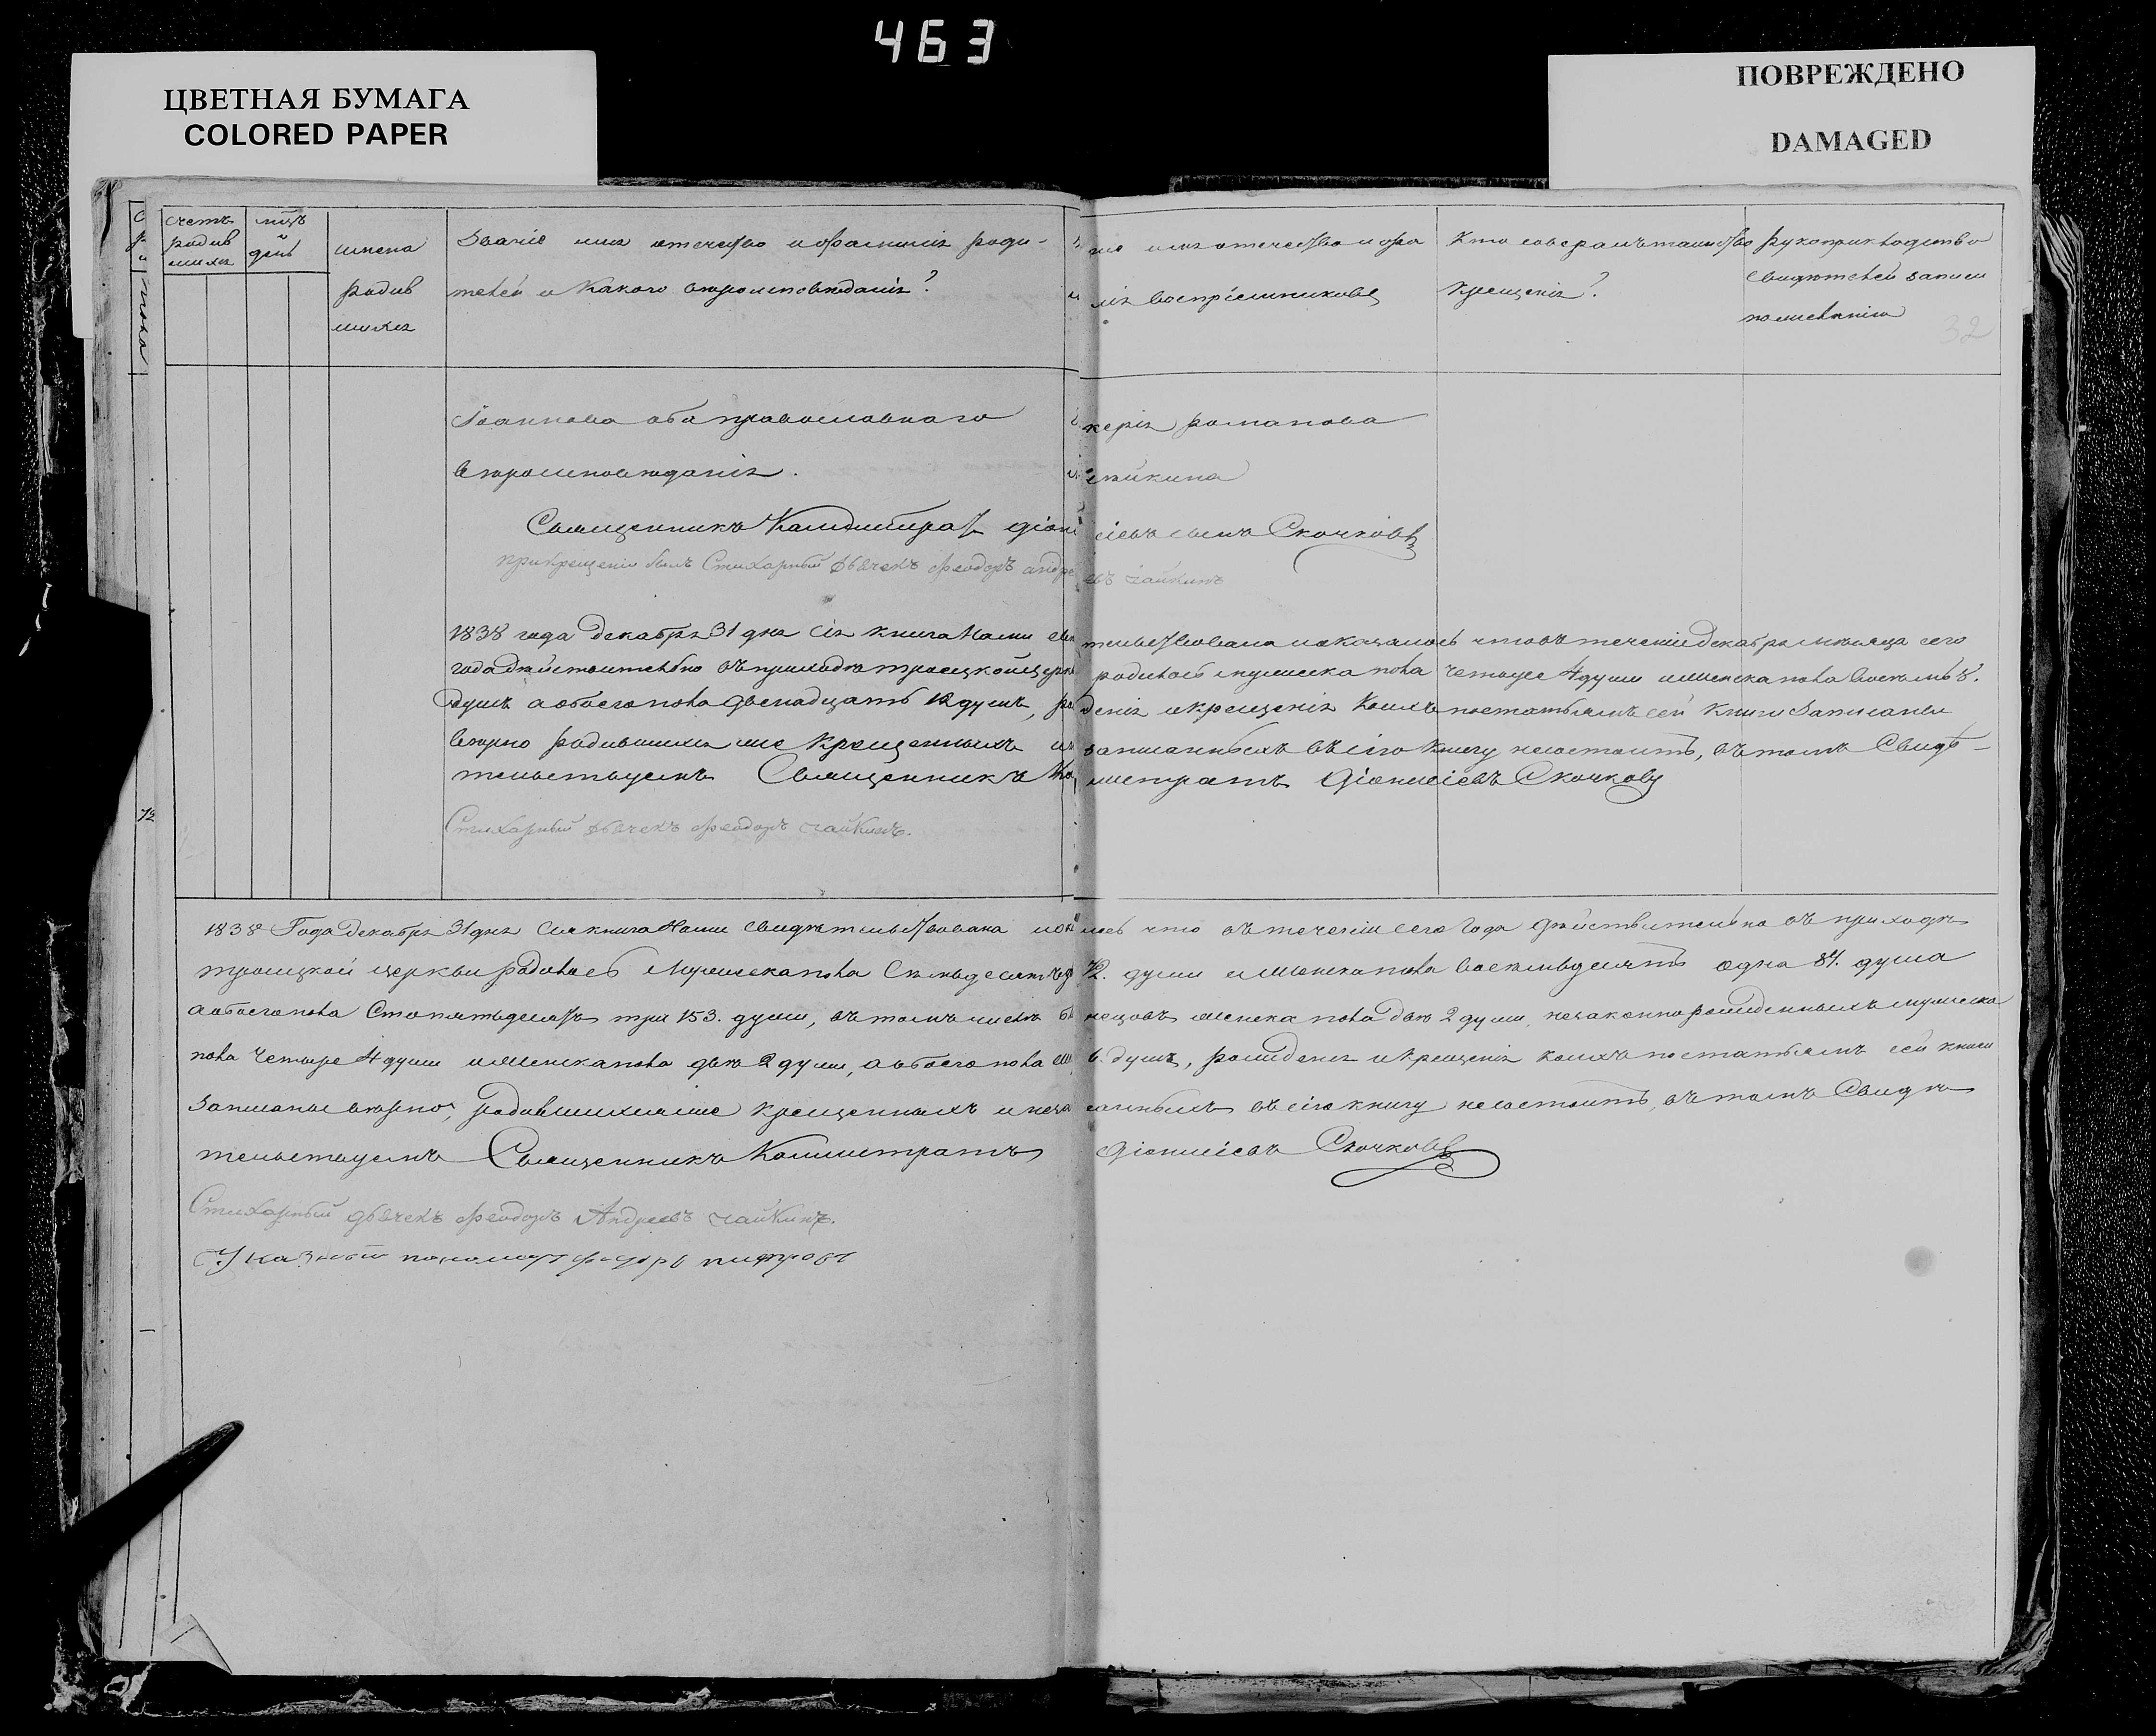 463
ЦВЕТНАЯ БУМАГА
COLORED PAPER
ПОВРЕЖДЕНО
DAMAGED
32
счетъ родив шихся
мцъ и день
имена родив шихся
Званіе имя отечество и фамилія роди-
телей и какого вѣроисповѣданія?
имя отечество и фа
лія воспріемниковъ
Кто совершалъ таинство
крещенія?
Рукоприкладство
свидѣтелей записи
по желанію
Іоаннова оба православнаго керія романова
вѣроисповѣданія.
Священникъ Калистратъ діони сіевъ сынъ Скочковъ
при крещеніи былъ Стихарный дьячекъ Феодоръ андре евъ чайкинъ
1838 года декабря 31 дня сія книга нами сви тельствована и оказалось что въ теченіи декабря мѣсяца сего
года дѣйствительно въ приходѣ троецкой церкв родилось мужеска пола четыре 4 души и женска пола восемь 8.
душъ а обоего пола двенадцать 12 душъ, ро денія и крещенія коихъ по статьямъ сей книги записаны
вѣрно родившихся же крещенныхъ и записанныхъ въ сію книгу несостоитъ, въ томъ Свидѣ-
тельствуемъ Священникъ Ка листратъ Діонисіевъ Скочковъ
Стихарный дьячекъ Феодоръ чайкинъ.
1838 Года декабря 31 дня сия книга нами свидѣтельствована и ока лось что въ теченіи сего года дѣйствительно въ приходѣ
троицкой церкви родилось мужеска пола Семьдесятъ 72. души и женска пола восемьдесятъ одна 81. душа
а обоего пола Сто пятьдесятъ три 153. души, въ томъ числѣ бл нецовъ женска пола двѣ 2 души, незаконнорожденныхъ мужеска
пола четыре 4 души и женска пола двѣ 2 души, а обоего пола ше 6. душъ, рожденія и крещенія коихъ по статьямъ сей книги
записаны вѣрно, родившихся же крещенныхъ и неза санныхъ въ сію книгу несостоитъ, въ томъ Свидѣ
тельствуемъ Священникъ Калистратъ Діонисіевъ Скочковъ
Стихарный дьячекъ Феодоръ Андреевъ чайкинъ.
Указной пономарь